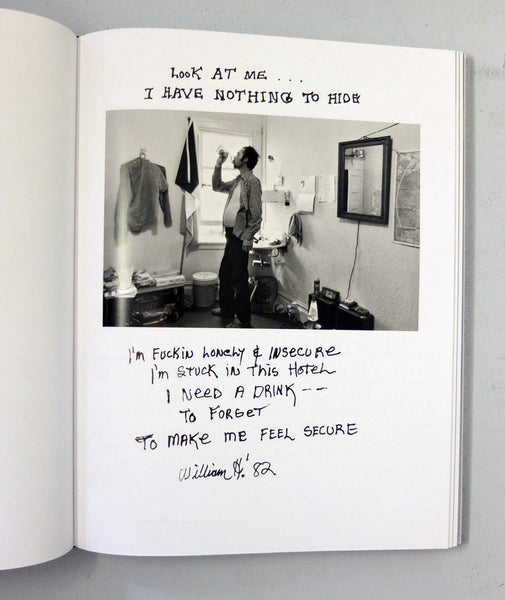 LooK AT ME ...
I HAVE NOTHING TO HIDE
I'm Fuckin Lonely & INSECURE
I'm STUCK IN THIS HOTEL
I NEED A DRINK --
TO FORGET
TO MAKE ME FEEL SECURE
William H. '82